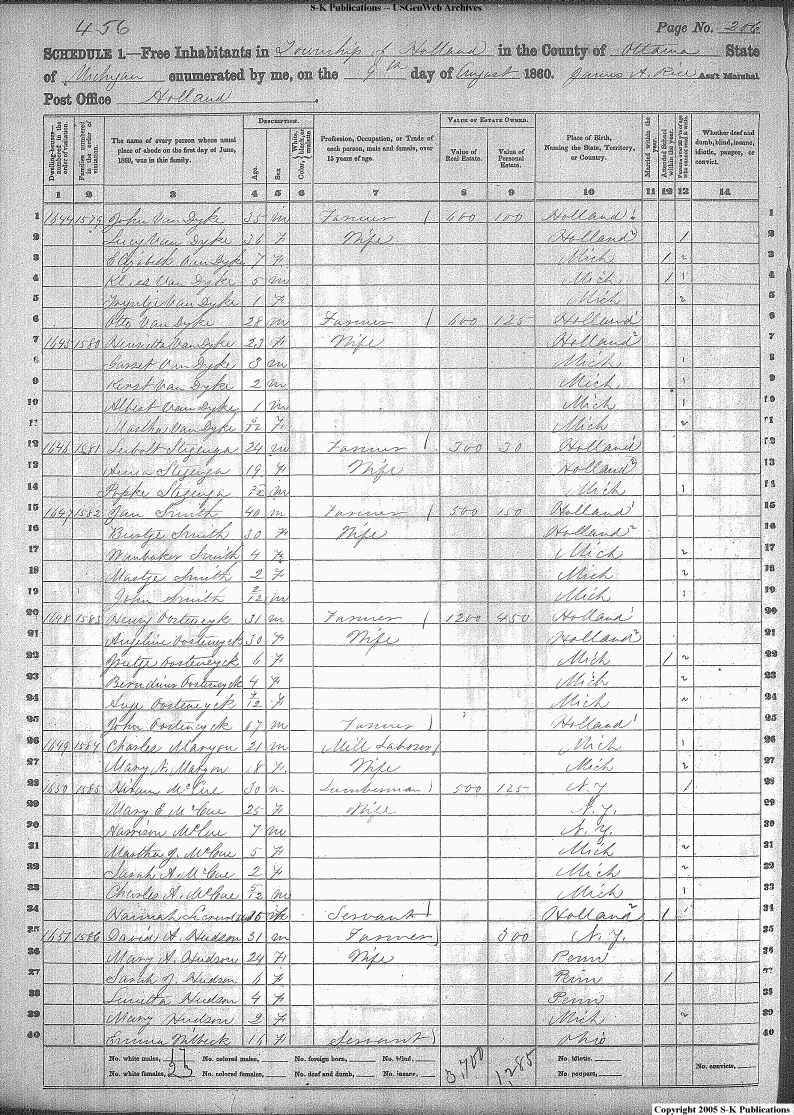 S-K Publications -- USGenWeb Archives
456
Page No. 206
SCHEDULE 1.—Free Inhabitants in Township of Holland in the County of Ottawa State
of Michigan enumerated by me, on the 9th day of August 1860. James A. Rice Ass't Marshal
Post Office Holland.
Dwelling-houses—numbered in the order of visitation.
Families numbered in the order of visitation.
The name of every person whose usual place of abode on the first day of June, 1860, was in this family.
DESCRIPTION.
Age.
Sex
Color, White, black or mulatto
Profession, Occupation, or Trade of each person, male and female, over 15 years of age.
VALUE OF ESTATE OWNED.
Value of Real Estate.
Value of Personal Estate.
Place of Birth, Naming the State, Territory, or Country.
Married within the year.
Attended School within the year.
Whether deaf and dumb, blind, insane, idiotic, pauper, or convict.
1 2 3 4 5 6 7 8 9 10 11 12 13 14
1 1644 1579 John Van Dyke 35 m Farmer 600 100 Holland 1 1
2 Lucy Van Dyke 36 F Wife Holland 2 1 2
3 Elizabeth Van Dyke 7 F Mich 1 2 3
4 Klaas Van Dyke 5 m Mich 1 1 4
5 Van Dyke 1 F Mich 2 5
6 Otto Van Dyke 28 m Farmer 600 125 Holland 1 6
7 1645 1580 Henrietta Van Dyke 23 F Wife Holland 2 7
8 Gasset Van Dyke 3 m Mich 1 8
9 Van Dyke 2 m Mich 1 9
10 Albert Van Dyke 1 m Mich 1 10
11 Martha Van Dyke /12 F Mich 2 11
12 1646 1581 Seibolt Stegenga 24 m Farmer 300 30 Holland 1 12
13 Anna Stegenga 19 F Wife Holland 2 13
14 Popke Stegenga /12 m Mich 1 14
15 1647 1582 Jan Smith 40 m Farmer 500 150 Holland 1 15
16 Smith 30 F Wife Holland 2 16
17 Smith 4 F Mich 2 17
18 Maatje Smith 2 F Mich 2 18
19 John Smith 2/12 m Mich 1 19
20 1648 1583 Henry Oosteneyck 31 m Farmer 1200 450 Holland 1 20
21 Angeline Oosteneyck 30 F Wife Holland 2 21
22 Oosteneyck 6 F Mich 1 2 22
23 Berndina Oosteneyck 4 F Mich 2 23
24 Oosteneyck /12 F Mich 2 24
25 John Oosteneyck 67 m Farmer Holland 1 25
26 1649 1584 Charles Maryon 21 m Mill Laborer Mich 1 26
27 Mary A. Maryon 18 F. Wife Mich 2 27
28 1650 1585 Hiram McCue 30 m Lumberman 500 125 N.Y 1 28
29 Mary E McCue 25 F Wife N.Y. 29
30 Harrison McCue 7 m N.Y. 30
31 Martha J. McCue 5 F Mich 2 31
32 Sarah A McCue 2 F Mich 2 32
33 Charles A. McCue /12 m Mich 1 33
34 Hannah Servant Holland 2 1 34
35 1651 1586 David A. Hudson 31 m Farmer 300 N.Y. 35
36 Mary A. Hudson 24 F Wife Penn 36
37 Sarah J. Hudson 6 F Penn 1 37
38 Luretta Hudson 4 F Penn 38
39 Mary Hudson 2 F Mich 2 39
40 Emma Wilbeck 16 F Servant Ohio 40
No. white males, 17 No. colored males, No. foreign born, No. blind, No. idiotic,
No. white females, 23 No. colored females, No. deaf and dumb, No. insane, 3,700 1,285 No. paupers, No. convicts,
Copyright 2005 S-K Publications